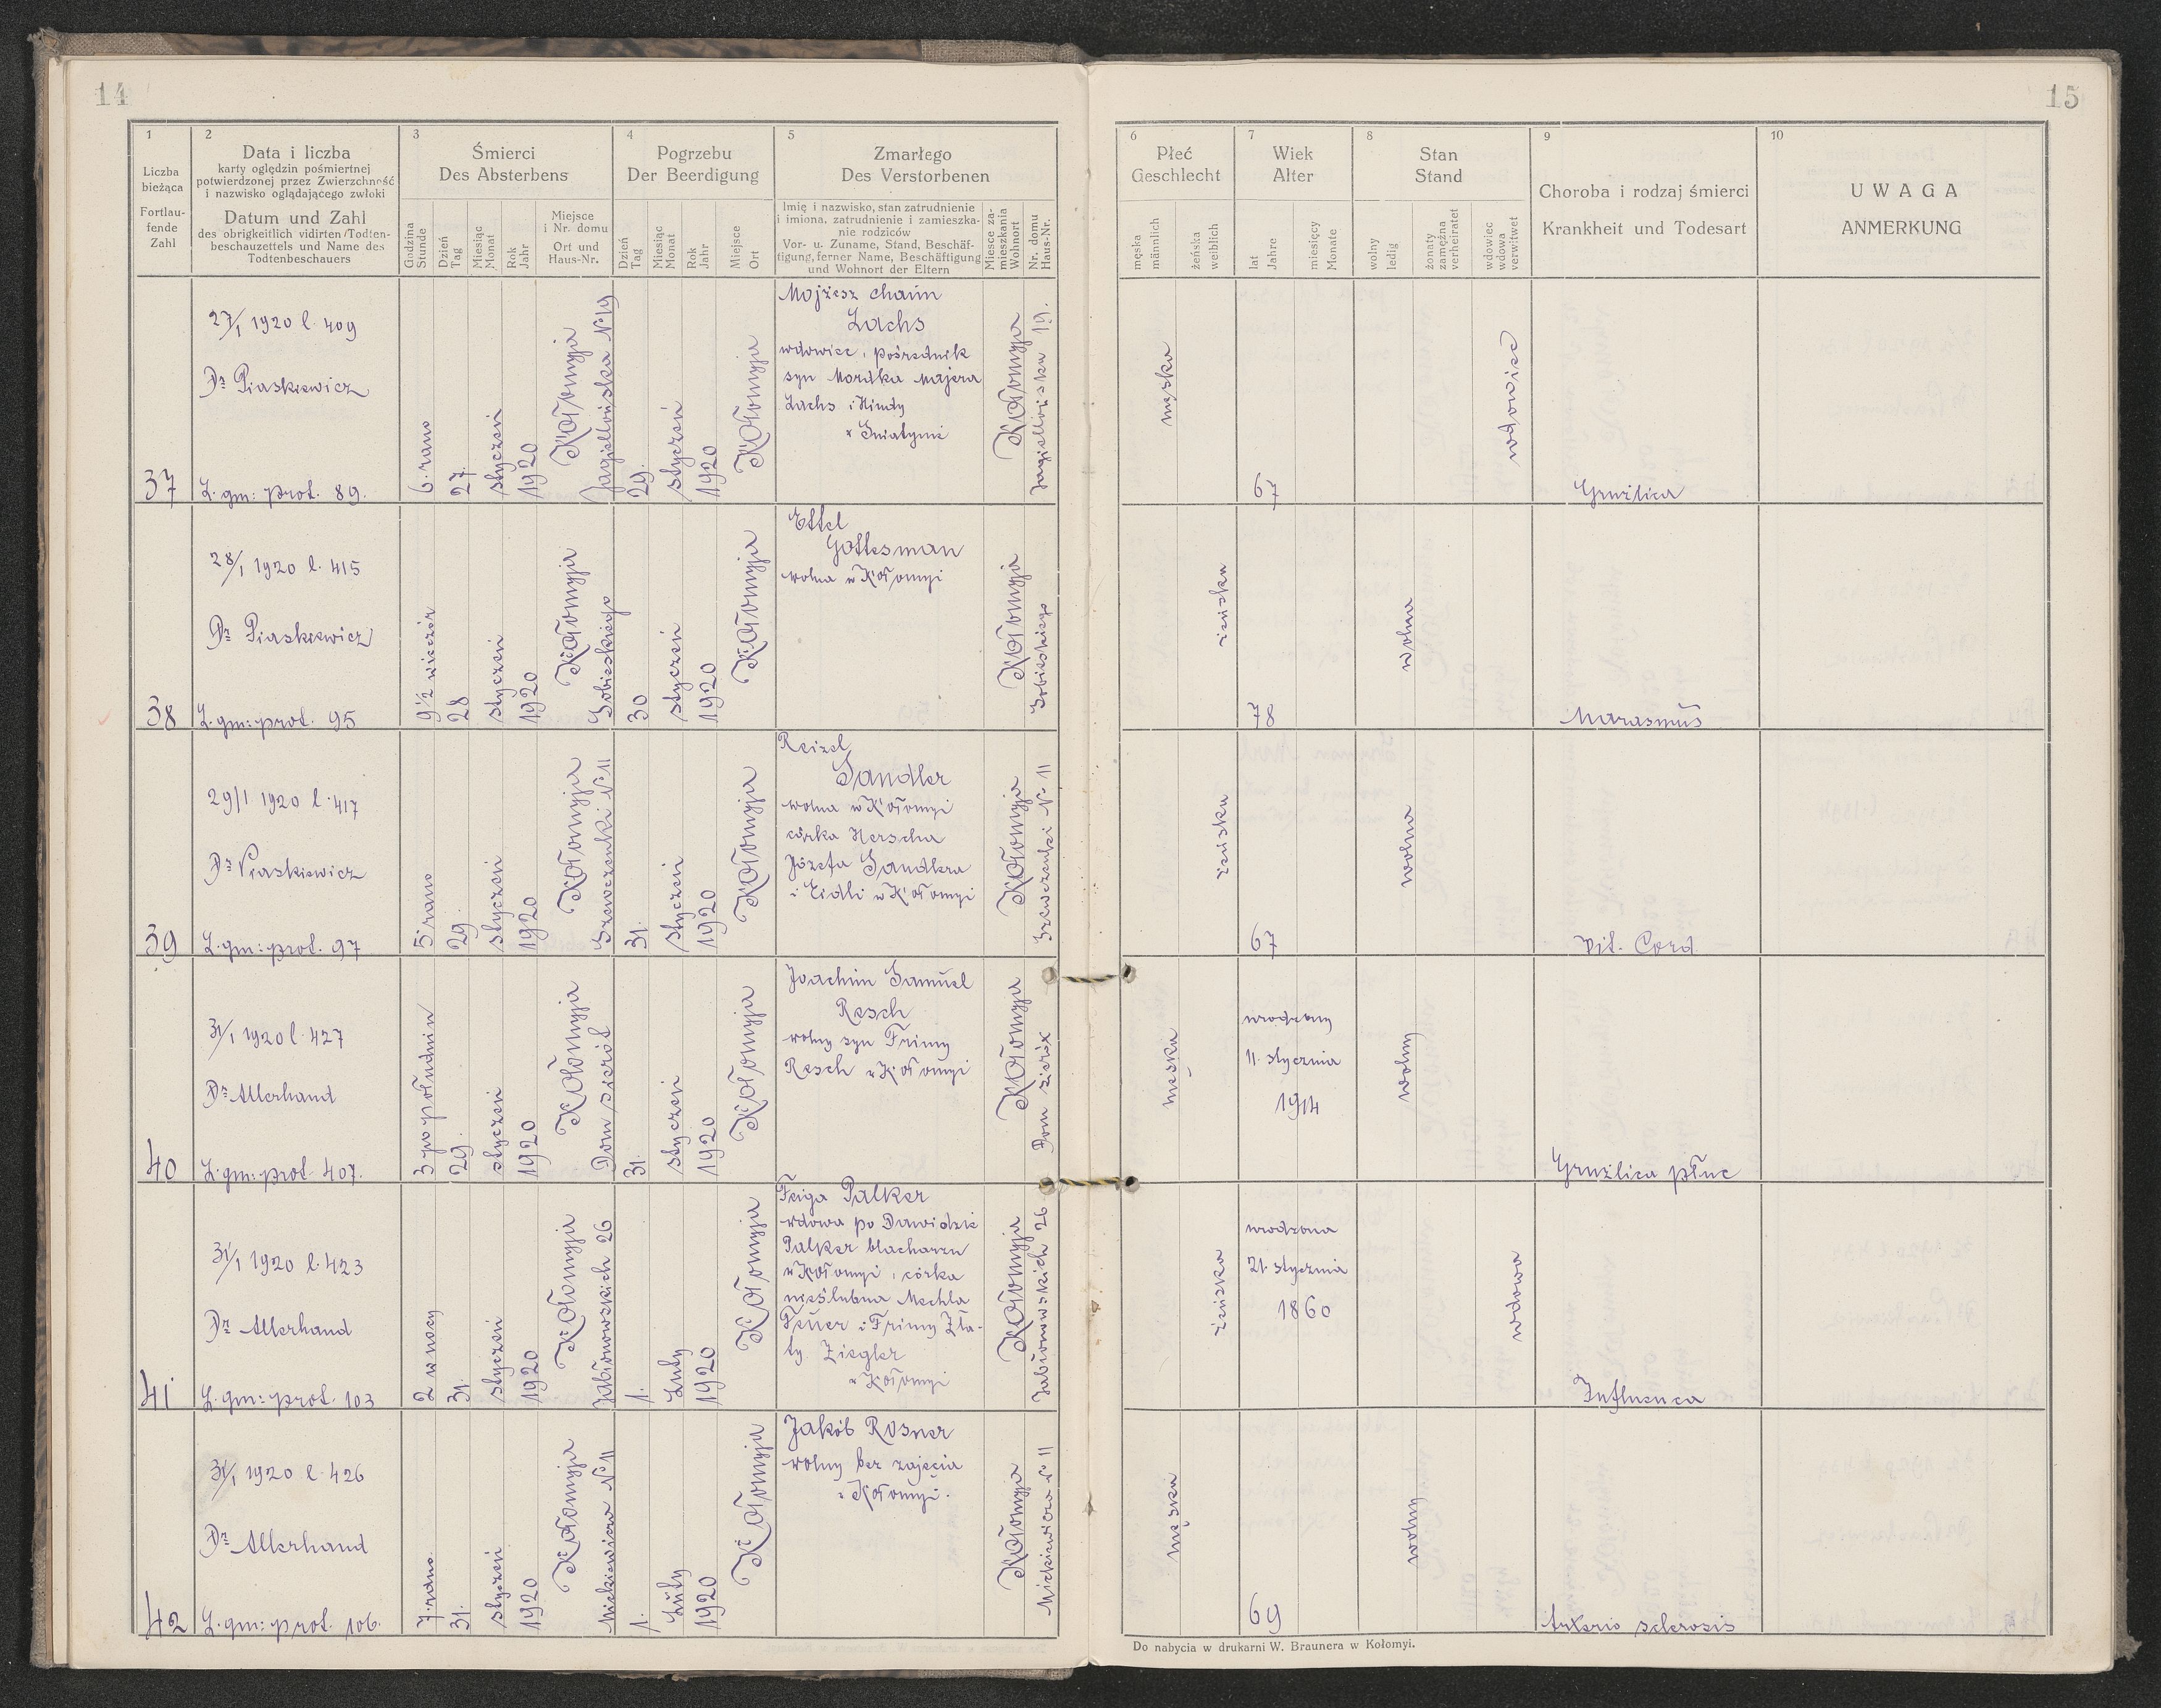 14
1
Liczba
bieżąca
Fortlau-
fende
Zahl
2
Data i liczba
karty oględzin pośmiertnej
potwierdzonej przez Zwierzchność
i nazwisko oglądającego zwłoki
Datum und Zahl
des obrigkeitlich vidirten /Todten-
beschauzettels und Name des
Todtenbeschauers
3
Śmierci
Des Absterbens
Godzina
Stunde
Dzień
Tag
Miesiąc
Monat
Rok
Jahr
Miejsce
i Nr. domu
Ort und
Haus-Nr.
4
Pogrzebu
Der Beerdigung
Dzień
Tag
Miesiąc
Monat
Rok
Jahr
Miejsce
Ort
5
Zmarłego
Des Verstorbenen
Imię i nazwisko, stan zatrudnienie
i imiona, zatrudnienie i zamieszka-
nie rodziców
Vor- u. Zuname, Stand, Beschäf-
tigung, ferner Name, Beschäftigung
und Wohnort der Eltern
Miesce za-
mieszkania
Wohnort
Nr. domu
Haus-Nr.
37
27/1 1920 l. 409
Dr Piaskiewicz
L. gm: prot. 89.
6. rano
27.
styczeń
1920
Kołomyja
Jagiellońska No 19
29.
styczeń
1920
Kołomyja
Mojżesz Chaim
Lachs
wdowiec, pośrednik
syn Mordka Majera
Lachs i Hindy
w Śniatynie
Kołomyja
Jagiellońska 19.
38
28/1 1920 l. 415
Dr Piaskiewicz
L. gm: prot. 95
9 1/2 wieczór
28
styczeń
1920
Kołomyja
Sobieskiego
30
styczeń
1920
Kołomyja
Ettel
Gottesman
wolna w Kołomyi
Kołomyja
Sobieskiego
39
29/1 1920 l. 417
Dr Piaskiewicz
L. gm: prot. 97
5 rano
29.
styczeń
1920
Kołomyja
Szewczenki No 11
31.
styczeń
1920
Kołomyja
Reizel
Sandler
wolna w Kołomyi
córka Herscha
Józefa Sandlera
i Eidli w Kołomyi
Kołomyja
Szewczenki No 11
40
31/1 1920 l. 427
Dr Allerhand
L. gm: prot. 407.
3 po południu
29.
styczeń
1920
Kołomyja
Dom sierót
31.
styczeń
1920
Kołomyja
Joachim Samuel
Resch
wolny syn Frimy
Resch w Kołomyi
Kołomyja
Dom sierót
41
31/1 1920 l. 423
Dr Allerhand
L. gm: prot. 103
2 w nocy
31.
styczeń
1920
Kołomyja
Jabłonowskich 26
1.
Luty
1920
Kołomyja
Feiga Palker
wdowa po Dawidzie
Palker blacharzu
w Kołomyi, córka
nieślubna Mechla
Feuer i Frimy Zła-
ty Ziegler
w Kołomyi
Kołomyja
Jabłonowskich 26
42
31/1 1920 l. 426
Dr Allerhand
L. gm: prot. 106.
7. rano.
31.
styczeń
1920
Kołomyja
Mickiewicza No 11
1.
Luty
1920
Kołomyja
Jakób Rosner
wolny bez zajęcia
w Kołomyi.
Kołomyja
Mickiewicza No 11
15
6
Płeć
Geschlecht
męska
männlich
żeńska
weiblich
7
Wiek
Alter
lat
Jahre
miesięcy
Monate
8
Stan
Stand
wolny
ledig
żonaty
zamężna
verheiratet
wdowiec
wdowa
verwitwet
9
Choroba i rodzaj śmierci
Krankheit und Todesart
10
UWAGA
ANMERKUNG
męska
67
wdowiec
Gruźlica
żeńska
78
wolna
Marasmus
żeńska
67
wolna
Vit. Cord.
męska
urodzony
11. stycznia
1914
wolny
Gruźlica płuc
żeńska
urodzona
21. stycznia
1860
wdowa
Influenca
męska
69
wolny
Arterio sclerosis
Do nabycia w drukarni W. Braunera w Kołomyi.